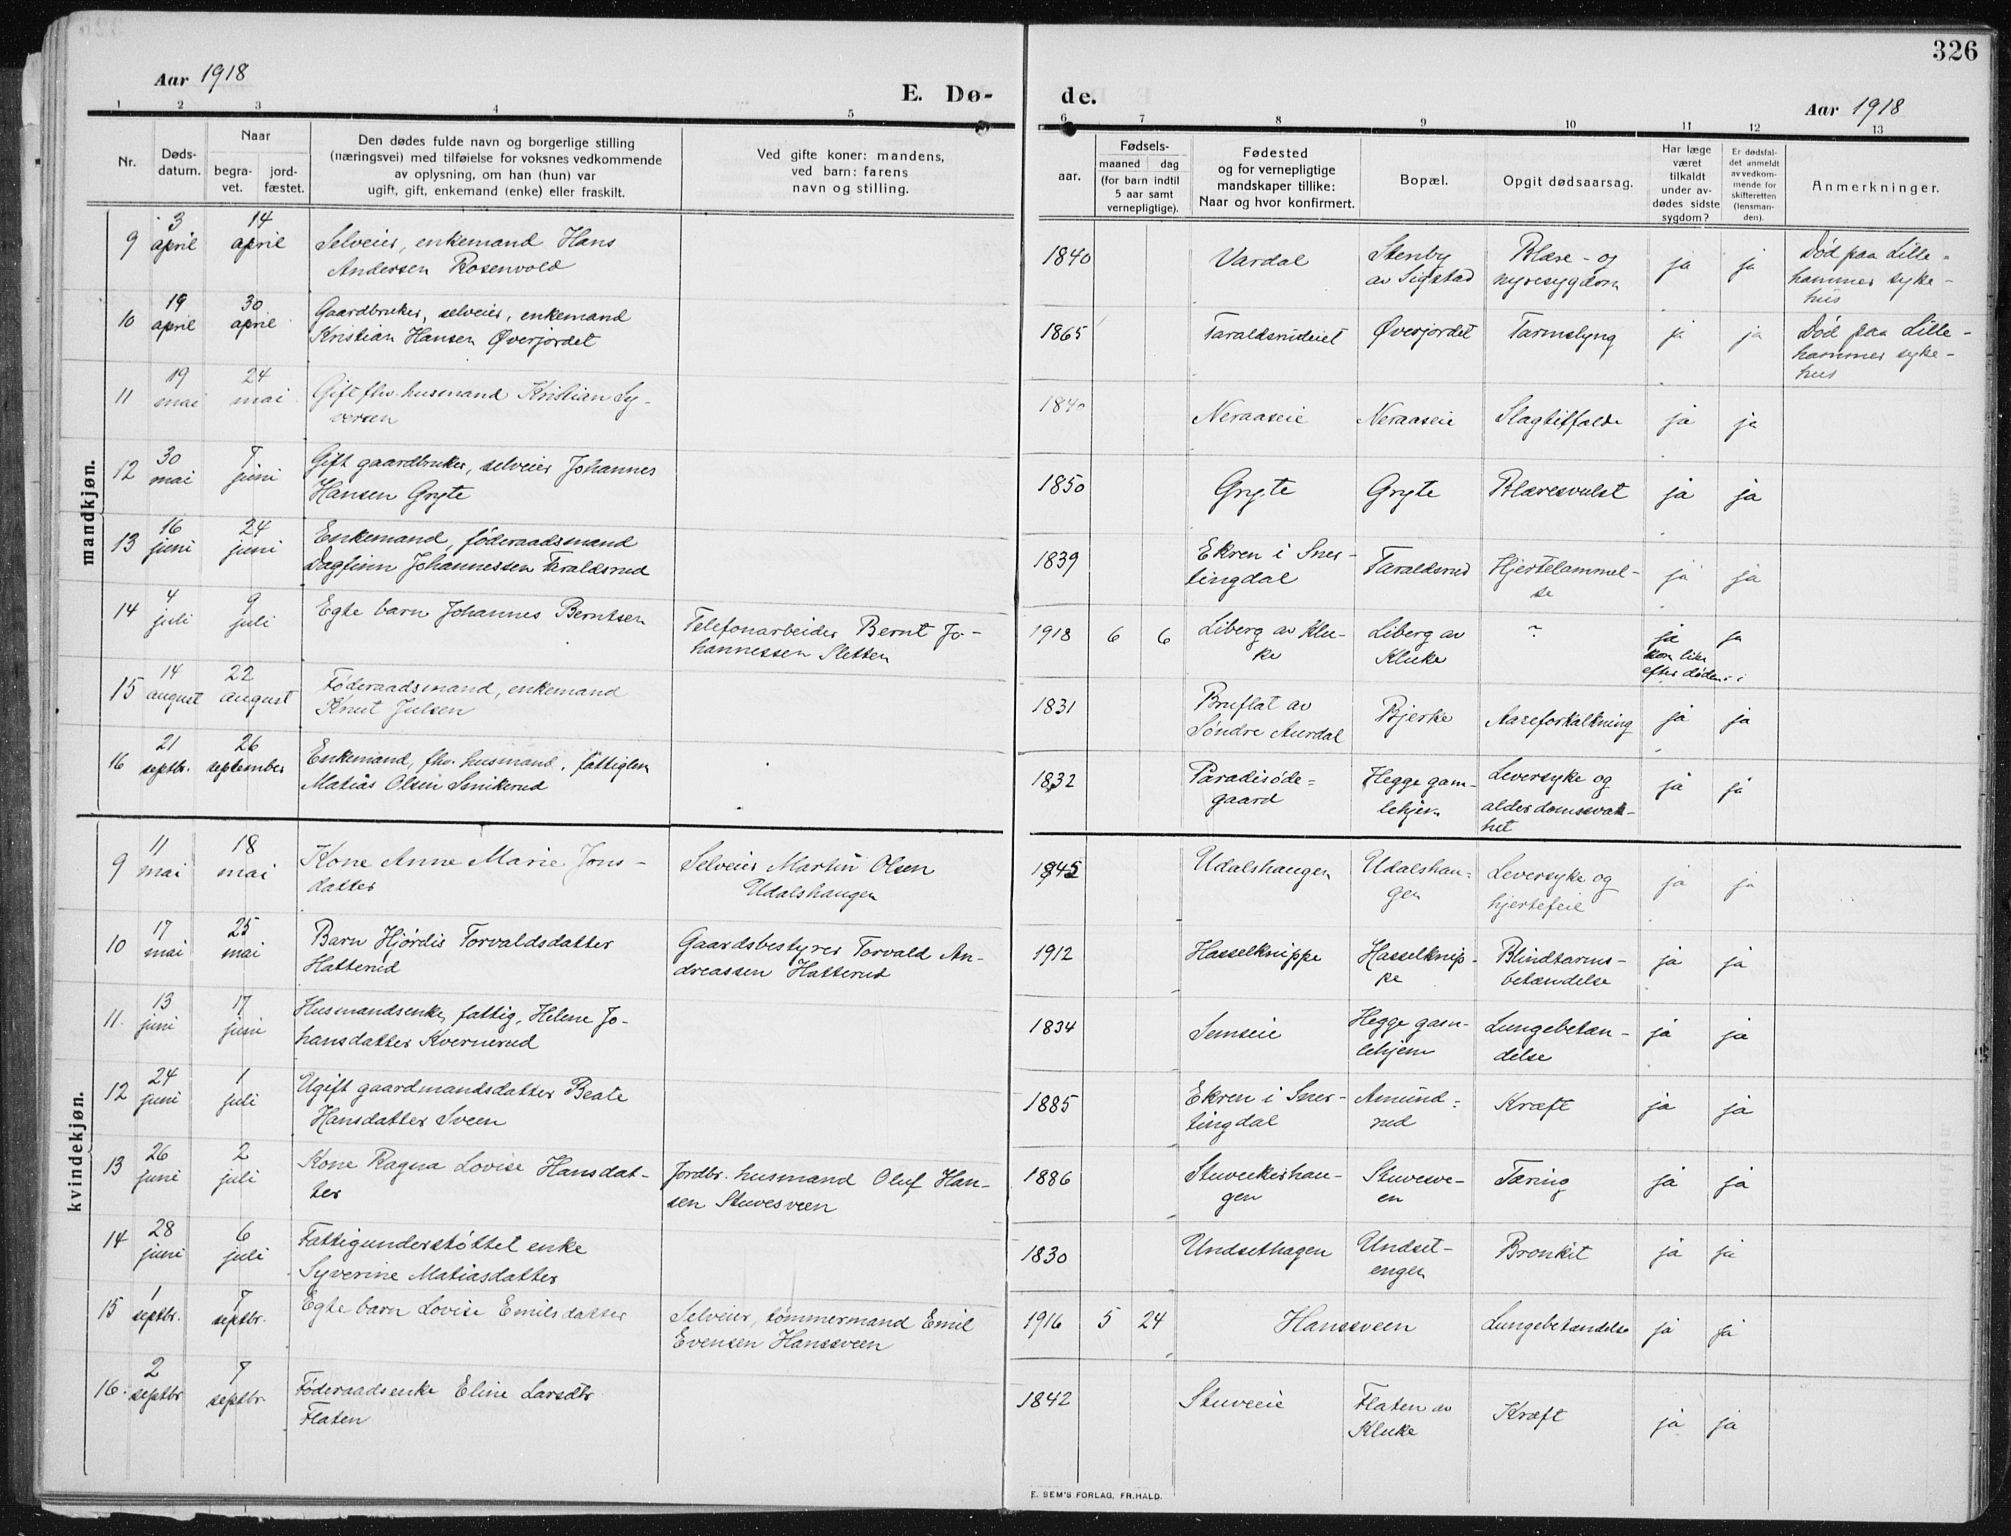 326
Aar 1918
E. Dø- de.
Aar 1918
1 2 3 4 5 6 7 8 9 10 11 12 13
Nr.
Døds-
datum.
Naar
begra-
vet.
jord-
fæstet.
Den dødes fulde navn og borgerlige stilling
(næringsvei) med tilføielse for voksnes vedkommende
av oplysning, om han (hun) var
ugift, gift, enkemand (enke) eller fraskilt.
Ved gifte koner: mandens,
ved barn: farens
navn og stilling.
Fødsels-
aar.
maaned dag
(for barn indtil
5 aar samt
vernepligtige).
Fødested
og for vernepligtige
mandskaper tillike:
Naar og hvor konfirmert.
Bopæl.
Opgit dødsaarsag.
Har læge
været
tilkaldt
under av-
dødes sidste
sygdom?
Er dødsfal-
det anmeldt
av vedkom-
mende for
skifteretten
(lensman-
den).
Anmerkninger.
mandkjøn.
9 3 april 14 april Selveier, enkemand Hans
Andersen Rosenvold
1840 Vardal Stenby
av Sigstad Blære- og
nyresygdom ja ja Død paa Lille-
hammer syke-
hus
10 19 april 30 april Gaardbruker, selveier, enkemand
Kristian Hansen Øverjordet
1865 Taraldsrudeiet Øverjordet Tarmslyng ja ja Død paa Lille-
hammer syke-
hus
11 19 mai 24 mai Gift fhv. husmand Kristian Sy-
versen
1840 Neraaseie Neraaseie Slagtilfælde ja ja
12 30 mai 7 juni Gift gaardbruker, selveier Johannes
Hansen Gryte
1850 Gryte Gryte Blæresvulst ja ja
13 16 juni 24 juni Enkemand, føderaadsmand
Dagfinn Johannessen Taraldsrud
1839 Ekren i Sner-
tingdal Taraldsrud Hjertelammel-
se ja ja
14 4 juli 9 juli Egte barn Johannes Berntsen
Telefonarbeider Bernt Jo-
hannessen Sletten
1918 6 6 Liberg av Klu-
ke Liberg av
Kluke ? ja
kom like
efter døden ja
15 14 august 22 august Føderaadsmand, enkemand
Knut Julsen
1831 Bruflat av
Søndre Aurdal Bjerke Aareforkalkning ja ja
16 21 septbr. 26 september Enkemand, fhv. husmand, fattiglem
Matias Olsen Smikerud
1832 Paradisøde-
gaard Hegge gam-
lehjem Leversyke og
alderdomssvak-
het ja ja
kvindekjøn.
9 11 mai 18 mai Kone Anne Marie Jons-
datter
Selveier Martin Olsen
Udalshaugen
1845 Udalshaugen Udalshau-
gen Leversyke og
hjertefeil ja ja
10 17 mai 25 mai Barn Hjørdis Torvaldsdatter
Hatterud
Gaardsbestyrer Torvald An-
dreassen Hatterud
1912 Hasselknippe Hasselknip-
pe Blindtarms-
betændelse ja ja
11. 13 juni 17 juni Husmandsenke, fattig, Helene Jo-
hansdatter Kvernerud
1834 Semseie Hegge gam-
lehjem Lungebetæn-
delse ja ja
12 24 juni 1 juli Ugift gaardmandsdatter Beate
Hansdatter Sveen
1885 Ekren i Sner-
tingdal Amund-
rud Kræft ja ja
13 26 juni 2 juli Kone Ragna Lovise Hansdat-
ter
Jordbr. husmand Oluf Han-
sen Stuvesveen
1886 Stuveekerhau-
gen Stuvesve-
en Tæring ja ja
14 28 juni 6 juli Fattigunderstøttet enke
Syverine Matiasdatter
1830 Undsethagen Undset-
engen Bronkit ja ja
15 1 septbr. 7 septbr. Egte barn Lovise Emilsdatter
Selveier, tømmermand Emil
Evensen Hanssveen
1916 5 24 Hanssveen Lungebetændelse ja ja
16. 2 septbr 7 septbr. Føderaadsenke Eline Larsdtr
Flaten
1842 Stuveeie Flaten av
Kluke Kræft ja ja
E. SEM'S FORLAG, FR.HALD.